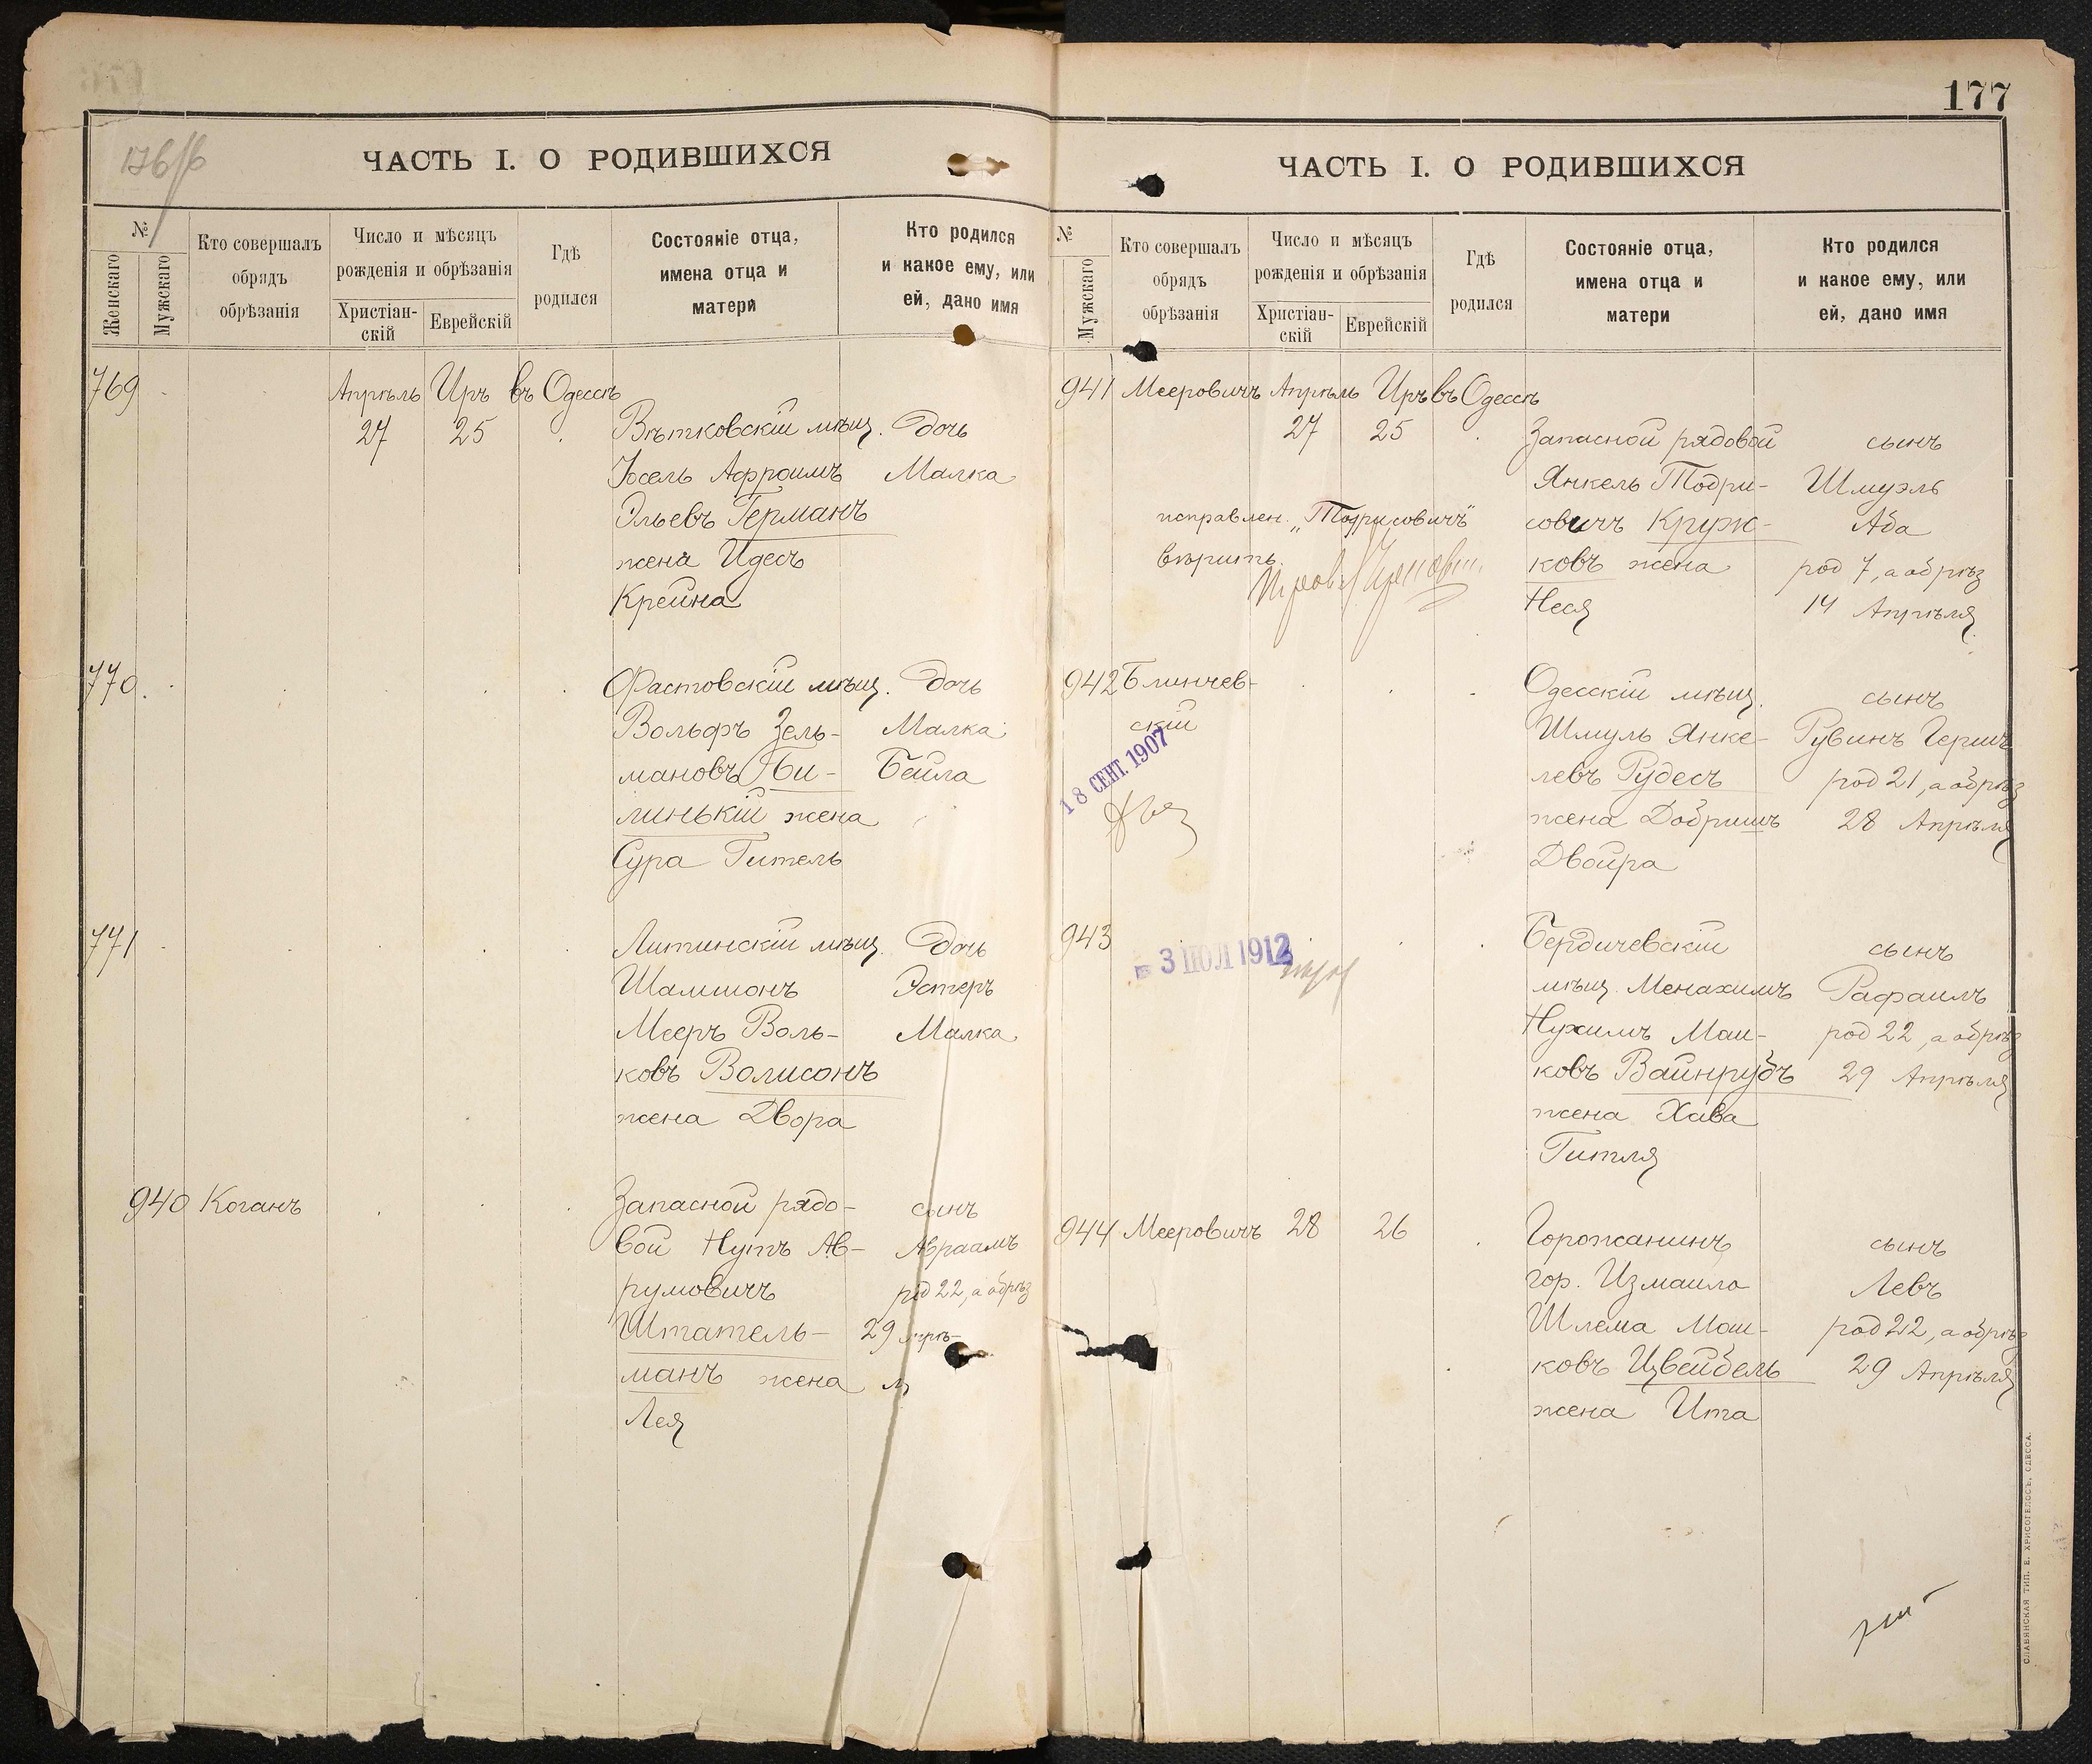 176/б
ЧАСТЬ I. О РОДИВШИХСЯ
№
Женскаго
Мужскаго
Кто совершалъ
обрядъ
обрѣзанія
Число и мѣсяцъ
рожденія и обрѣзанія
Христіан-
скій
Еврейскій
Гдѣ
родился
Состояніе отца,
имена отца и
матери
Кто родился
и какое ему, или
ей, дано имя
769 Апрѣль Иръ въ Одессѣ
27 25 Вѣтковскій мѣщ. Дочь
Іосель Афроимъ Малка
Эльевъ Германъ
жена Идесъ
Крейна
770. Фастовскій мѣщ. Дочь
Вольфъ Зель- Малка
мановъ Би- Бейла
линькій жена
Сура Гитель
771 Литинскій мѣщ. Дочь
Шамшонъ Эстеръ
Мееръ Воль- Малка
ковъ Волисонъ
жена Двора
940 Коганъ Запасной рядо- сынъ
вой Нутъ Ав- Авраамъ
румовичъ род 22, а обрѣз
Штатель- 29 Апрѣ-
манъ жена ля
Лея
177
ЧАСТЬ I. О РОДИВШИХСЯ
№
Мужскаго
Кто совершалъ
обрядъ
обрѣзанія
Число и мѣсяцъ
рожденія и обрѣзанія
Христіан-
скій
Еврейскій
Гдѣ
родился
Состояніе отца,
имена отца и
матери
Кто родился
и какое ему, или
ей, дано имя
941 Мееровичъ Апрѣль Иръ въ Одессѣ
27 25 Запасной рядовой сынъ
Янкель Тодри- Шмуэль
исправлен. „Тодрисовичъ" совичъ Круж- Аба
вѣрить. ковъ жена род 7, а обрѣз
Неся 14 Апрѣля
942 Блинчев- Одесскій мѣщ. сынъ
скій Шмуль Янке- Рувинъ Гершъ
18 СЕНТ. 1907 левъ Рудесъ род 21, а обрѣз
жена Добришъ 28 Апрѣля
Двойра
943 Бердичевскій сынъ
- 3 ІЮЛ 1912 мѣщ. Менахимъ Рафаилъ
Нухимъ Мош- род 22, а обрѣз
ковъ Вайнрубъ 29 Апрѣля
жена Хава
Гитля
944 Мееровичъ 28 26 Горожанинъ сынъ
гор. Измаила Левъ
Шлема Мош- род 22, а обрѣз
ковъ Цвейбель 29 Апрѣля
жена Ита
СЛАВЯНСКАЯ ТИП. Е. ХРИСОГЕЛОСЪ, ОДЕССА.